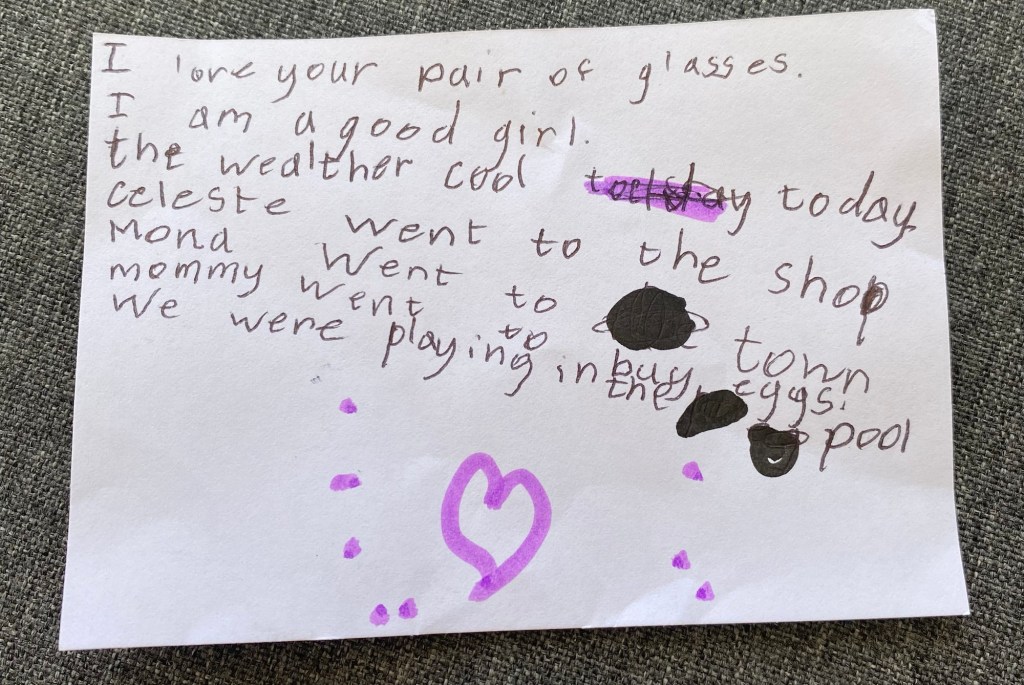 I love your pair of glasses.
I am a good girl.
the wealther cool today
celeste went to the shop
Mona went to town
mommy went to buy eggs.
We were playing in the pool